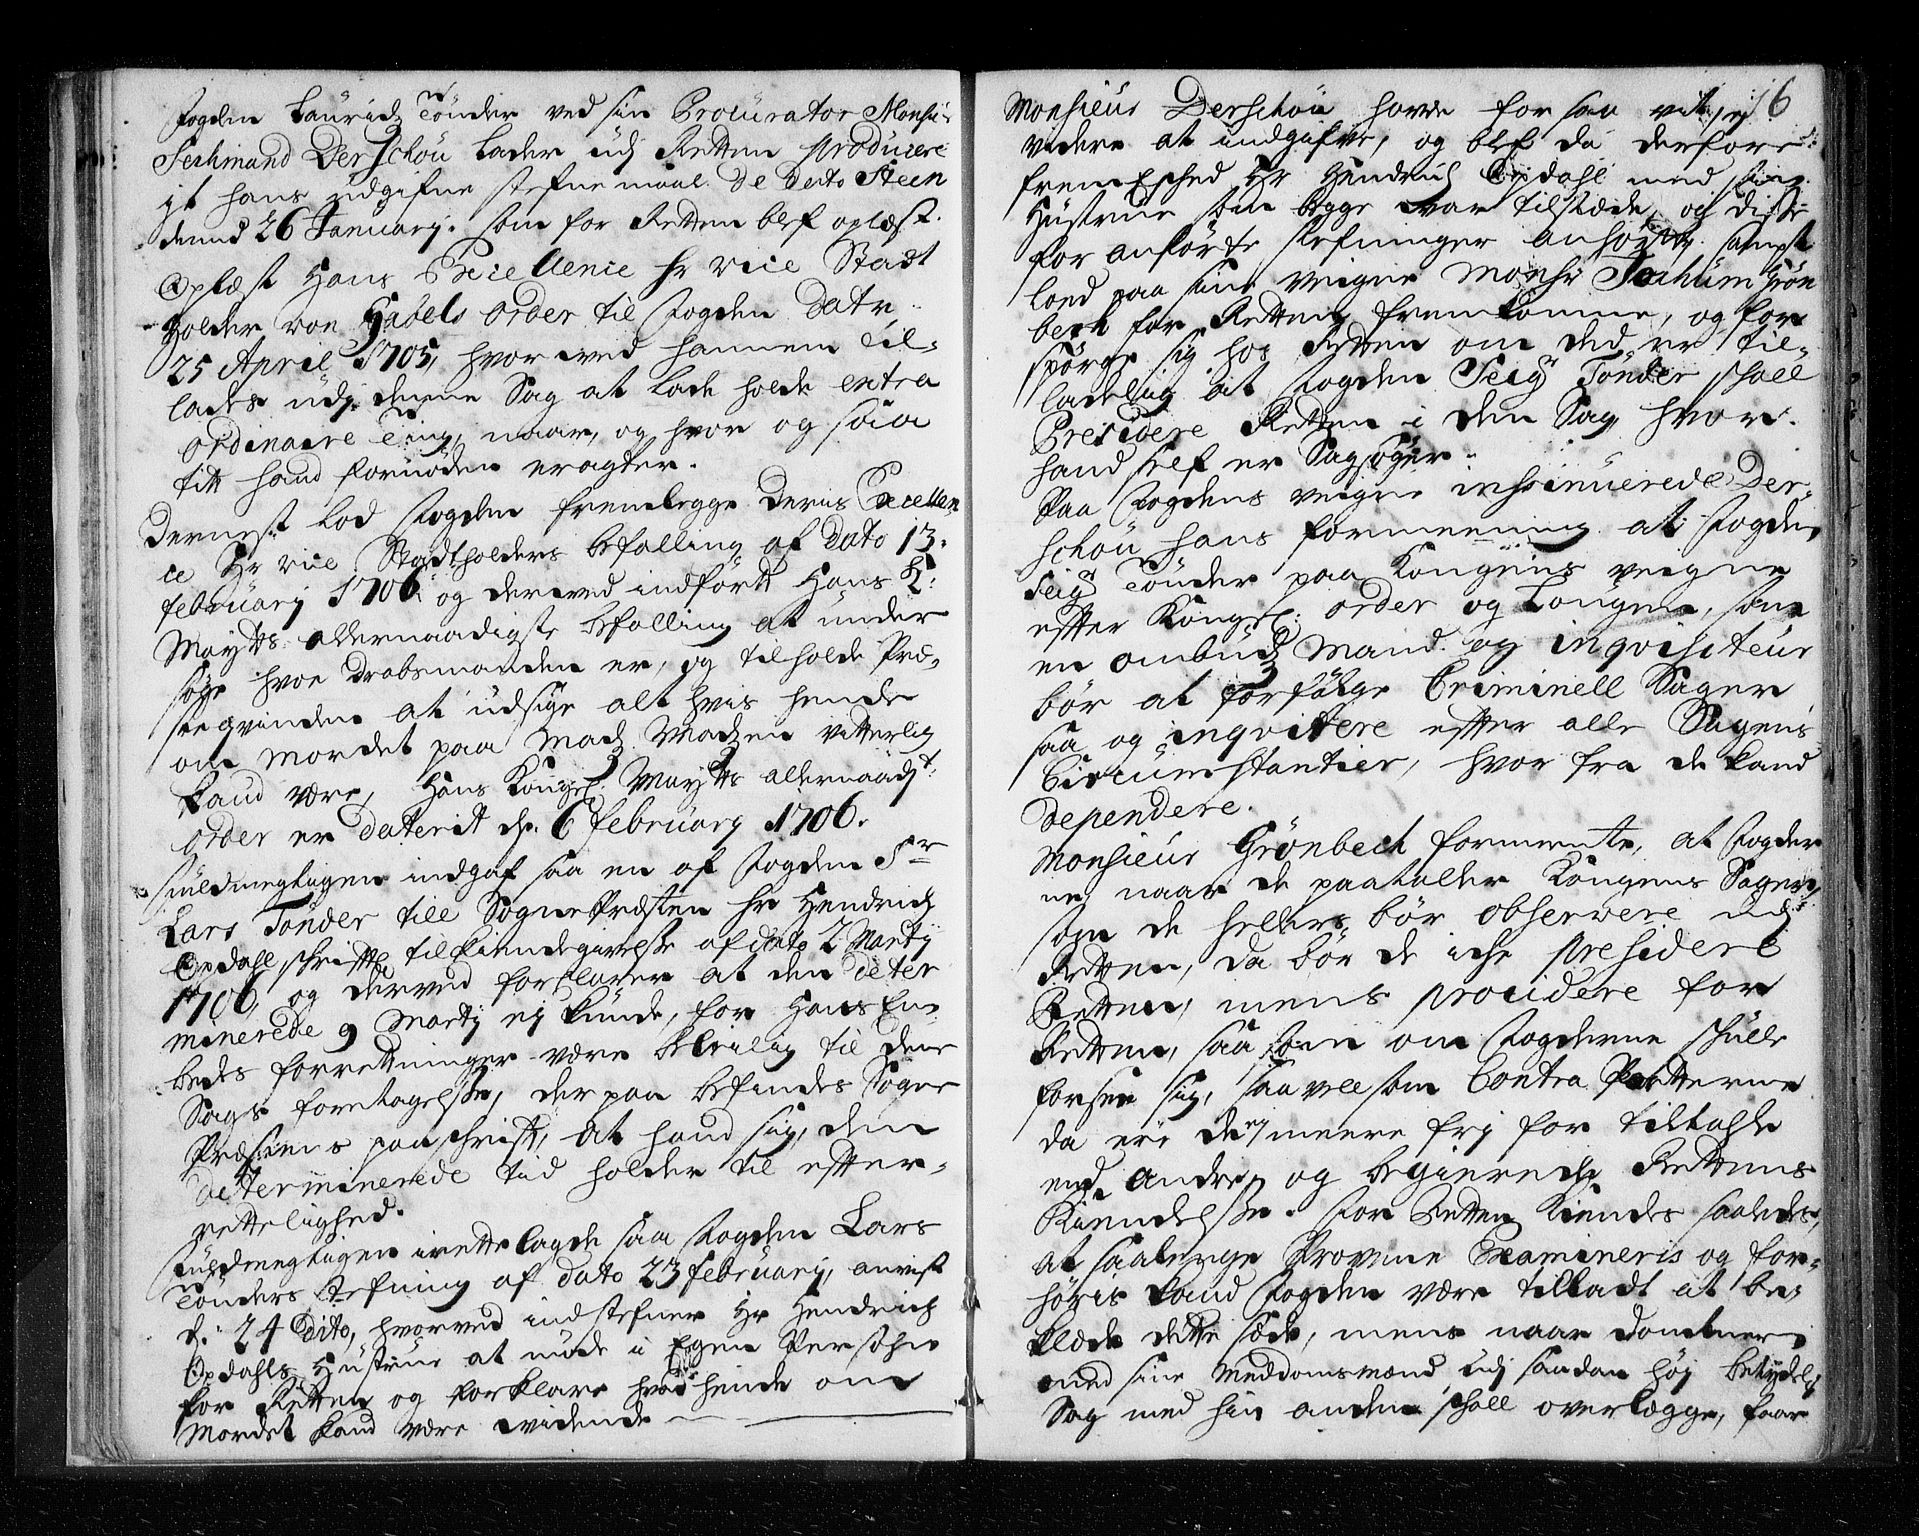 Fogden Lauridz Tønder ved sin Procurator Monsi-
Ferdinand Derschou lader udj Retten producere
it hans udgifne stefnemaal de dato Steen
dend 26 January: som for Retten blef oplæst.
Oplæst Hans Excellence hr vice Stadt
holder von Gabels order til Fogden datr:
25 April 1705, hvor ved hannem til-
lades udj denne Sag at lade holde extra
ordinaire Ting, naar, og hvor og saa
tit hand fornøden eragter.
Dernest lod Fogden fremlegge Deris Excellen-
ce Hr vice Stadtholders befalling af dato 13.
february 1706 og derved indført Hans K:
Mayts allernaadigste befalling at under
søge hvem Drabsmanden er, og tilholde Præ-
steqvinden at udsige alt hvis hende
om mordet paa Madz Madzen vitterlig
kand være, Hans Kongel: Mayts allernaadst:
order er daterit d. 6 february 1706.
Fuldmegtigen indgaf saa en af Fogden Sr
Lars Tønder till SognePræsten hr Hendrich
Opdahl schrifftl: tilkiendegivelse af dato 2 Martij
1706, og derved forklarer at den deter
minerede 9 Martij ej kunde, for Hans Em-
beds forretninger være beleilig til denne
Sags foretagelse, der paa befindes Sogne
Præstens paaschrifft, at hand sig, den
determinerede tid holder til effter-
rettelighed.
Fuldmegtigen irettelagde saa Fogden Lars
Tønders stefning af dato 23 february, anvist
d: 24 dito, hvorved indstefner Hr Hendrich
Opdahls Hustrue at møde i Egen Persohn
for Retten og forklare hvad hende om
Mordet kand være vidende
6
Monsieur Derschou havde for saa vit ej
videre at indgifve, og blef da derfore
fremEsched Hr Hendrich Opdahl med sin
Hustrue som begge var tilstæde, og disse
for anførte stefninger anhørte, sampt
loed paa sine veigne Monsr Jochum Grøn
bech for Retten fremkomme, og for
spørge sig hos Retten om ded er til-
ladelig at Fogden Seigr Tønder schall
Presidere Retten i den Sag, hvor
hand self er Sagsøger.
Paa Fogdens veigne insinuerede Der-
schou hans formeening at Fogden
Seigr Tønder paa Kongens veigne
effter Kongel: order og Lougen, som
en ombudzMand og inqvisiteur
bør at forfølge Criminell Sager
saa og inqvirere effter alle Sagens
Circumstantier, hvor fra de kand
dependere.
Monsieur Grønbech formeente, at Fogder
ne naar de paataller Kongens Sager,
som de hellers bør observere udj
Retten, da bør de iche presidere
Retten, mens procidere for
Retten, saasom om Fogderne schulle
forsee sig, saavelsom Contra Parterne
da ere de ej meere frj for tiltahle
end andre, og begierede Rettens
Kiendelse. For Retten Kiendes saaledes,
at saalenge Provene Examineris og for-
høris kand Fogden være tilladt at be-
klæde dette sæde, mens naar domberen
med sine Meddomsmænd udj saadan høj betydel:
Sag med hin anden schall overlægge, faar